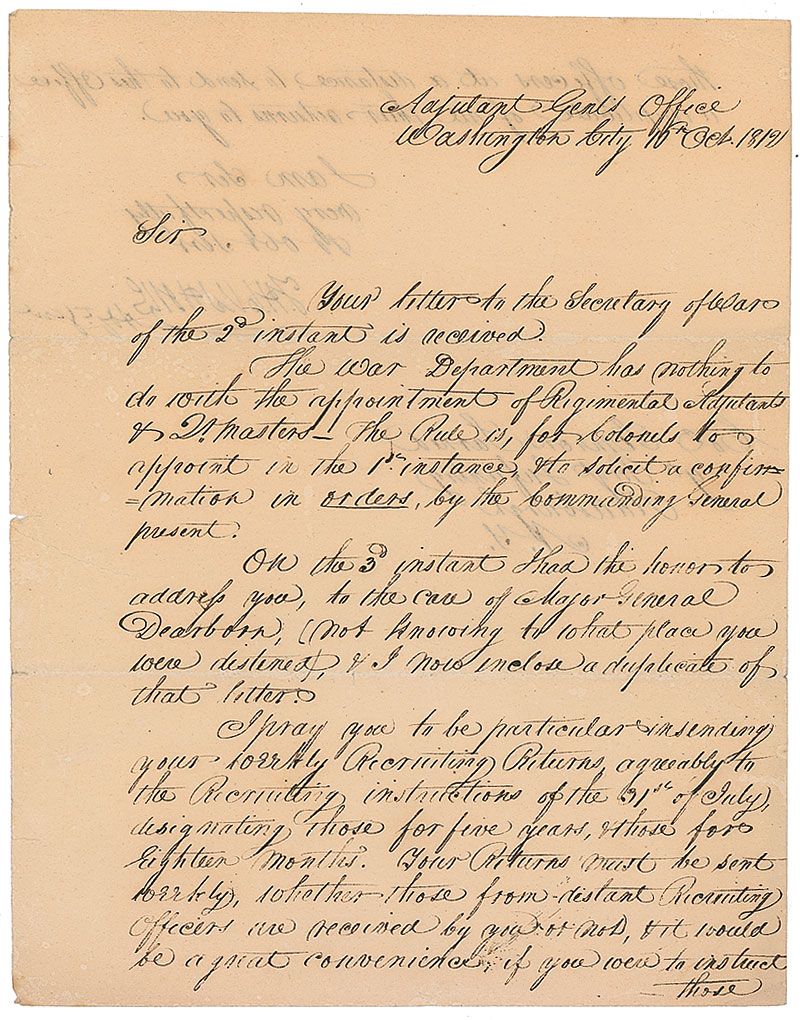 Adjutant Genl's Office
Washington City 10th Oct. 1812
Sir
Your letter to the Secretary of War
of the 2d instant is received.
The War Department has nothing to
do with the appointment of Regimental Adjutants
& Qr Masters — The Rule is, for Colonels to
appoint in the 1st instance, & to solicit a confir=
=mation in orders, by the Commanding General
present.
On the 3d instant I had the honor to
address you, to the care of Major General
Dearborn, (not knowing to what place you
were distened), & I now inclose a duplicate of
that letter.
I pray you to be particular in sending
your weekly Recruiting Returns, agreeably to
the Recruiting instructions of the 31st of July,
designating those for five years, & those for
Eighteen months. Your Returns must be sent
weekly, whether those from distant Recruiting
Officers are received by you or not, & it would
be a great convenience, if you were to instruct
those